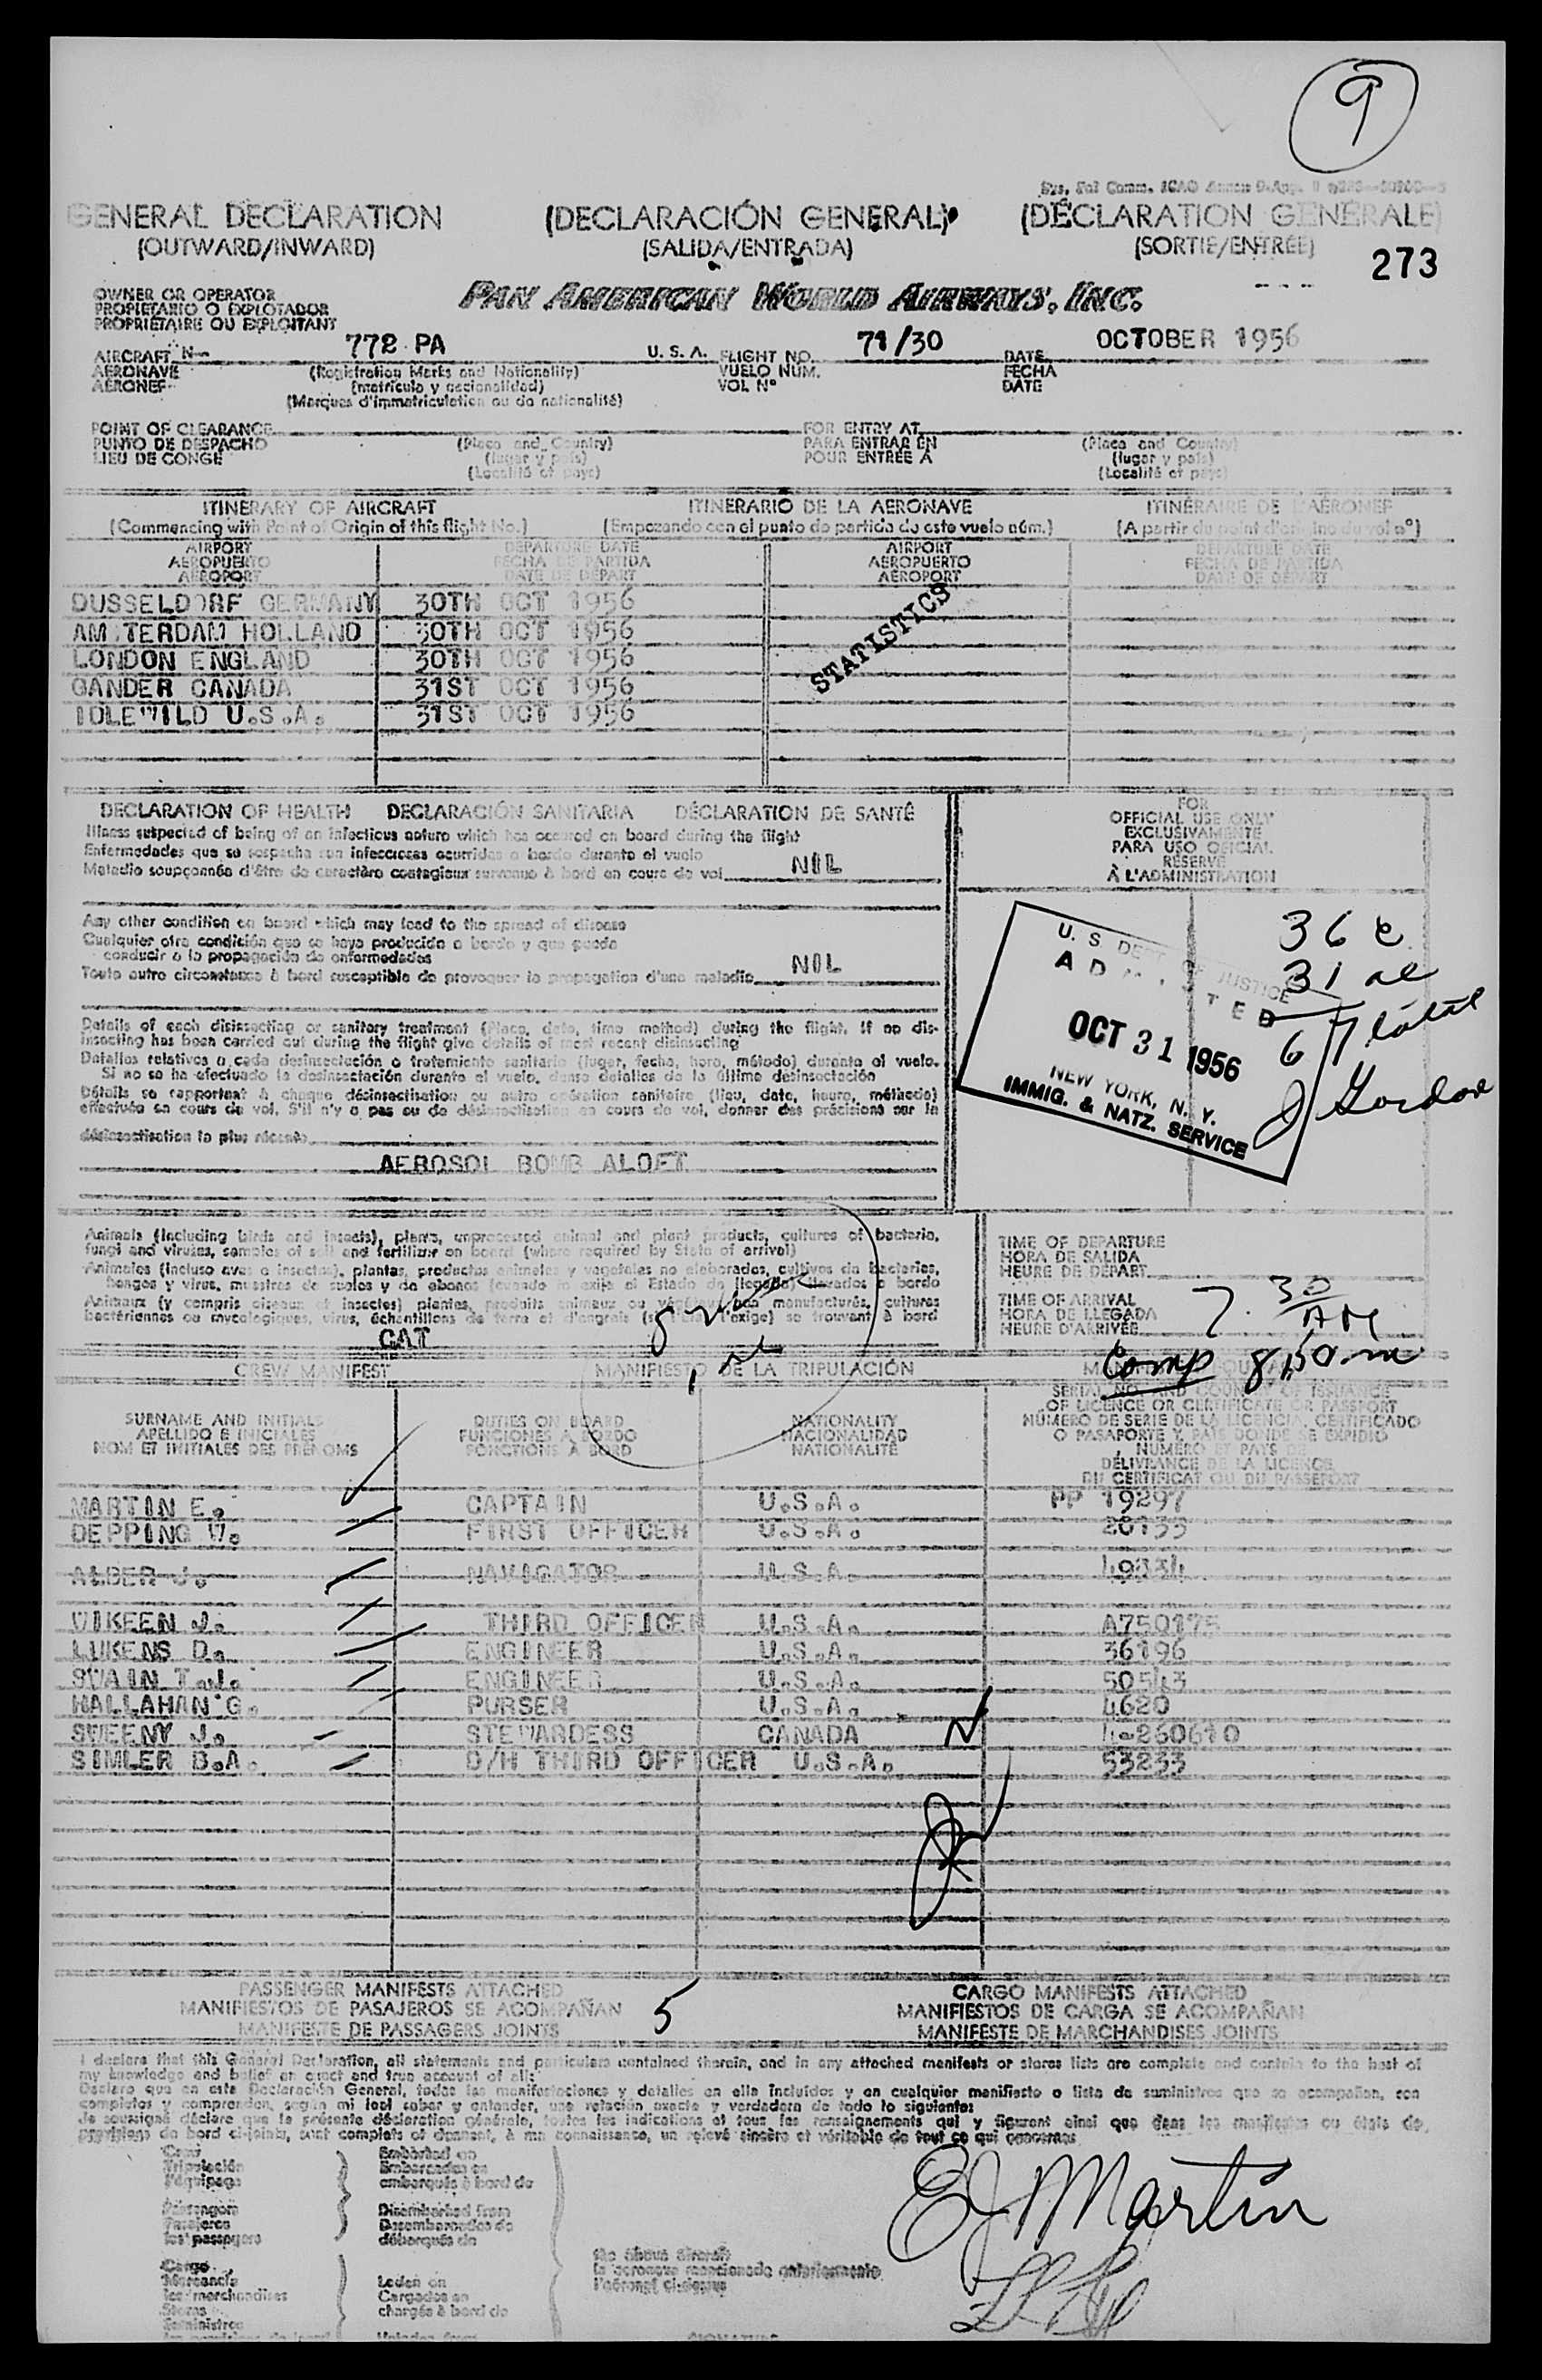 9
GENERAL DECLARATION (DECLARACIÓN GENERAL) (DÉCLARATION GÉNÉRALE)
(OUTWARD/INWARD) (SALIDA/ENTRADA) (SORTIE/ENTRÉE)
273
OWNER OR OPERATOR
PROPIETARIO O EXPLOTADOR
PROPRIÉTAIRE OU EXPLOITANT
PAN AMERICAN WORLD AIRWAYS, INC.
AIRCRAFT N- 772 PA U.S.A. FLIGHT NO. 71/30 DATE OCTOBER 1956
AERONAVE (Registration Marks and Nationality) VUELO NÚM. FECHA
AÉRONEF (matrícula y nacionalidad) VOL Nº DATE
(Marques d'immatriculation ou de nationalité)
POINT OF CLEARANCE FOR ENTRY AT
PUNTO DE DESPACHO (Place and Country) PARA ENTRAR EN (Place and Country)
LIEU DE CONGÉ (lugar y país) POUR ENTRÉE A (lugar y país)
(Localité et pays) (Localité et pays)
ITINERARY OF AIRCRAFT ITINERARIO DE LA AERONAVE ITINÉRAIRE DE L'AÉRONEF
(Commencing with Point of Origin of this flight No.) (Empezando con el punto de partida de este vuelo núm.) (A partir du point d'origine du vol nº)
AIRPORT DEPARTURE DATE AIRPORT DEPARTURE DATE
AEROPUERTO FECHA DE PARTIDA AEROPUERTO FECHA DE PARTIDA
AÉROPORT DATE DE DÉPART AÉROPORT DATE DE DÉPART
DUSSELDORF GERMANY 30TH OCT 1956
AMSTERDAM HOLLAND 30TH OCT 1956
LONDON ENGLAND 30TH OCT 1956
GANDER CANADA 31ST OCT 1956
IDLEWILD U.S.A. 31ST OCT 1956
STATISTICS
DECLARATION OF HEALTH DECLARACIÓN SANITARIA DÉCLARATION DE SANTÉ
Illness suspected of being of an infectious nature which has occured on board during the flight
Enfermedades que se sospecha son infecciosas ocurridas a bordo durante el vuelo
Maladie soupçonnée d'être de caractère contagieux survenue à bord en cours de vol NIL
Any other condition on board which may lead to the spread of disease
Cualquier otra condición que se haya producido a bordo y que pueda
conducir a la propagación de enfermedades
Toute autre circonstance à bord susceptible de provoquer la propagation d'une maladie NIL
Details of each disinsecting or sanitary treatment (Place, date, time method) during the flight. If no dis-
insecting has been carried out during the flight give details of most recent disinsecting
Detalles relativos a cada desinsectación o tratamiento sanitario (lugar, fecha, hora, método) durante el vuelo.
Si no se ha efectuado la desinsectación durante el vuelo, dense detalles de la última desinsectación
Détails se rapportant à chaque désinsectisation ou autre opération sanitaire (lieu, date, heure, méthode)
effectuée en cours de vol. S'il n'y a pas eu de désinsectisation en cours de vol, donner des précisions sur la
désinsectisation la plus récente
AEROSOL BOMB ALOFT
FOR
OFFICIAL USE ONLY
EXCLUSIVAMENTE
PARA USO OFICIAL
RÉSERVÉ
À L'ADMINISTRATION
36 c
31 al
67 total
J Gordon
U. S. DEPT OF JUSTICE
ADMITTED
OCT 31 1956
NEW YORK, N. Y.
IMMIG. & NATZ. SERVICE
Animals (including birds and insects), plants, unprocessed animal and plant products, cultures of bacteria,
fungi and viruses, samples of soil and fertilizer on board (where required by State of arrival)
Animales (incluso aves o insectos), plantas, productos animales y vegetales no elaborados, cultivos de bacterias,
hongos y virus, muestras de suelos y de abonos (cuando lo exija el Estado de llegada) llevados a bordo
Animaux (y compris oiseaux et insectes) plantes, produits animaux ou végétaux non manufacturés, cultures
bactériennes ou mycologiques, virus, échantillons de terre et d'engrais (si l'État l'exige) se trouvant à bord
CAT
TIME OF DEPARTURE
HORA DE SALIDA
HEURE DE DÉPART
TIME OF ARRIVAL
HORA DE LLEGADA
HEURE D'ARRIVÉE
7.30 AM
Comp 8,50 m
CREW MANIFEST MANIFIESTO DE LA TRIPULACIÓN
SURNAME AND INITIALS DUTIES ON BOARD NATIONALITY SERIAL NO. AND COUNTRY OF ISSUANCE
APELLIDO E INICIALES FUNCIONES A BORDO NACIONALIDAD OF LICENCE OR CERTIFICATE OR PASSPORT
NOM ET INITIALES DES PRÉNOMS FONCTIONS À BORD NATIONALITÉ NÚMERO DE SERIE DE LA LICENCIA, CERTIFICADO
O PASAPORTE Y PAIS DONDE SE EXPIDIÓ
NUMÉRO ET PAYS DE
DÉLIVRANCE DE LA LICENCE
DU CERTIFICAT OU DU PASSEPORT
MARTIN E. CAPTAIN U.S.A. PP 19297
DEPPING W. FIRST OFFICER U.S.A. 20133
ALBER J. NAVIGATOR U.S.A. 49334
WIKEEN J. THIRD OFFICER U.S.A. A750175
LUKENS D. ENGINEER U.S.A. 36196
SWAIN T.J. ENGINEER U.S.A. 50543
HALLAHAN G. PURSER U.S.A. 4620
SWEENY J. STEWARDESS CANADA 4-260610
SIMLER B.A. D/H THIRD OFFICER U.S.A. 53233
PASSENGER MANIFESTS ATTACHED CARGO MANIFESTS ATTACHED
MANIFIESTOS DE PASAJEROS SE ACOMPAÑAN 5 MANIFIESTOS DE CARGA SE ACOMPAÑAN
MANIFESTE DE PASSAGERS JOINTS MANIFESTE DE MARCHANDISES JOINTS
I declare that this General Declaration, all statements and particulars contained therein, and in any attached manifests or stores lists are complete and contain to the best of
my knowledge and belief an exact and true account of all:
Declaro que en esta Declaración General, todas las manifestaciones y detalles en ella incluídos y en cualquier manifiesto o lista de suministros que se acompañan, son
completos y comprenden, según mi leal saber y entender, una relación exacta y verdadera de todo lo siguiente:
Je soussigné déclare que la présente déclaration générale, toutes les indications et tous les renseignements qui y figurent ainsi que dans les manifestes ou états de
provisions de bord ci-joints, sont complets et donnent, à ma connaissance, un relevé sincère et véritable de tout ce qui concerne:
Crew Embarked on
Tripulación Embarcados en
l'équipage embarqués à bord de
Passengers Disembarked from
Pasajeros Desembarcados de
les passagers débarqués de
Cargo
Mercancía Laden on
les marchandises Cargados en
Stores chargés à bord de
Suministros
the above aircraft
la aeronave mencionada anteriormente
l'aéronef ci-dessus
EJ Martin